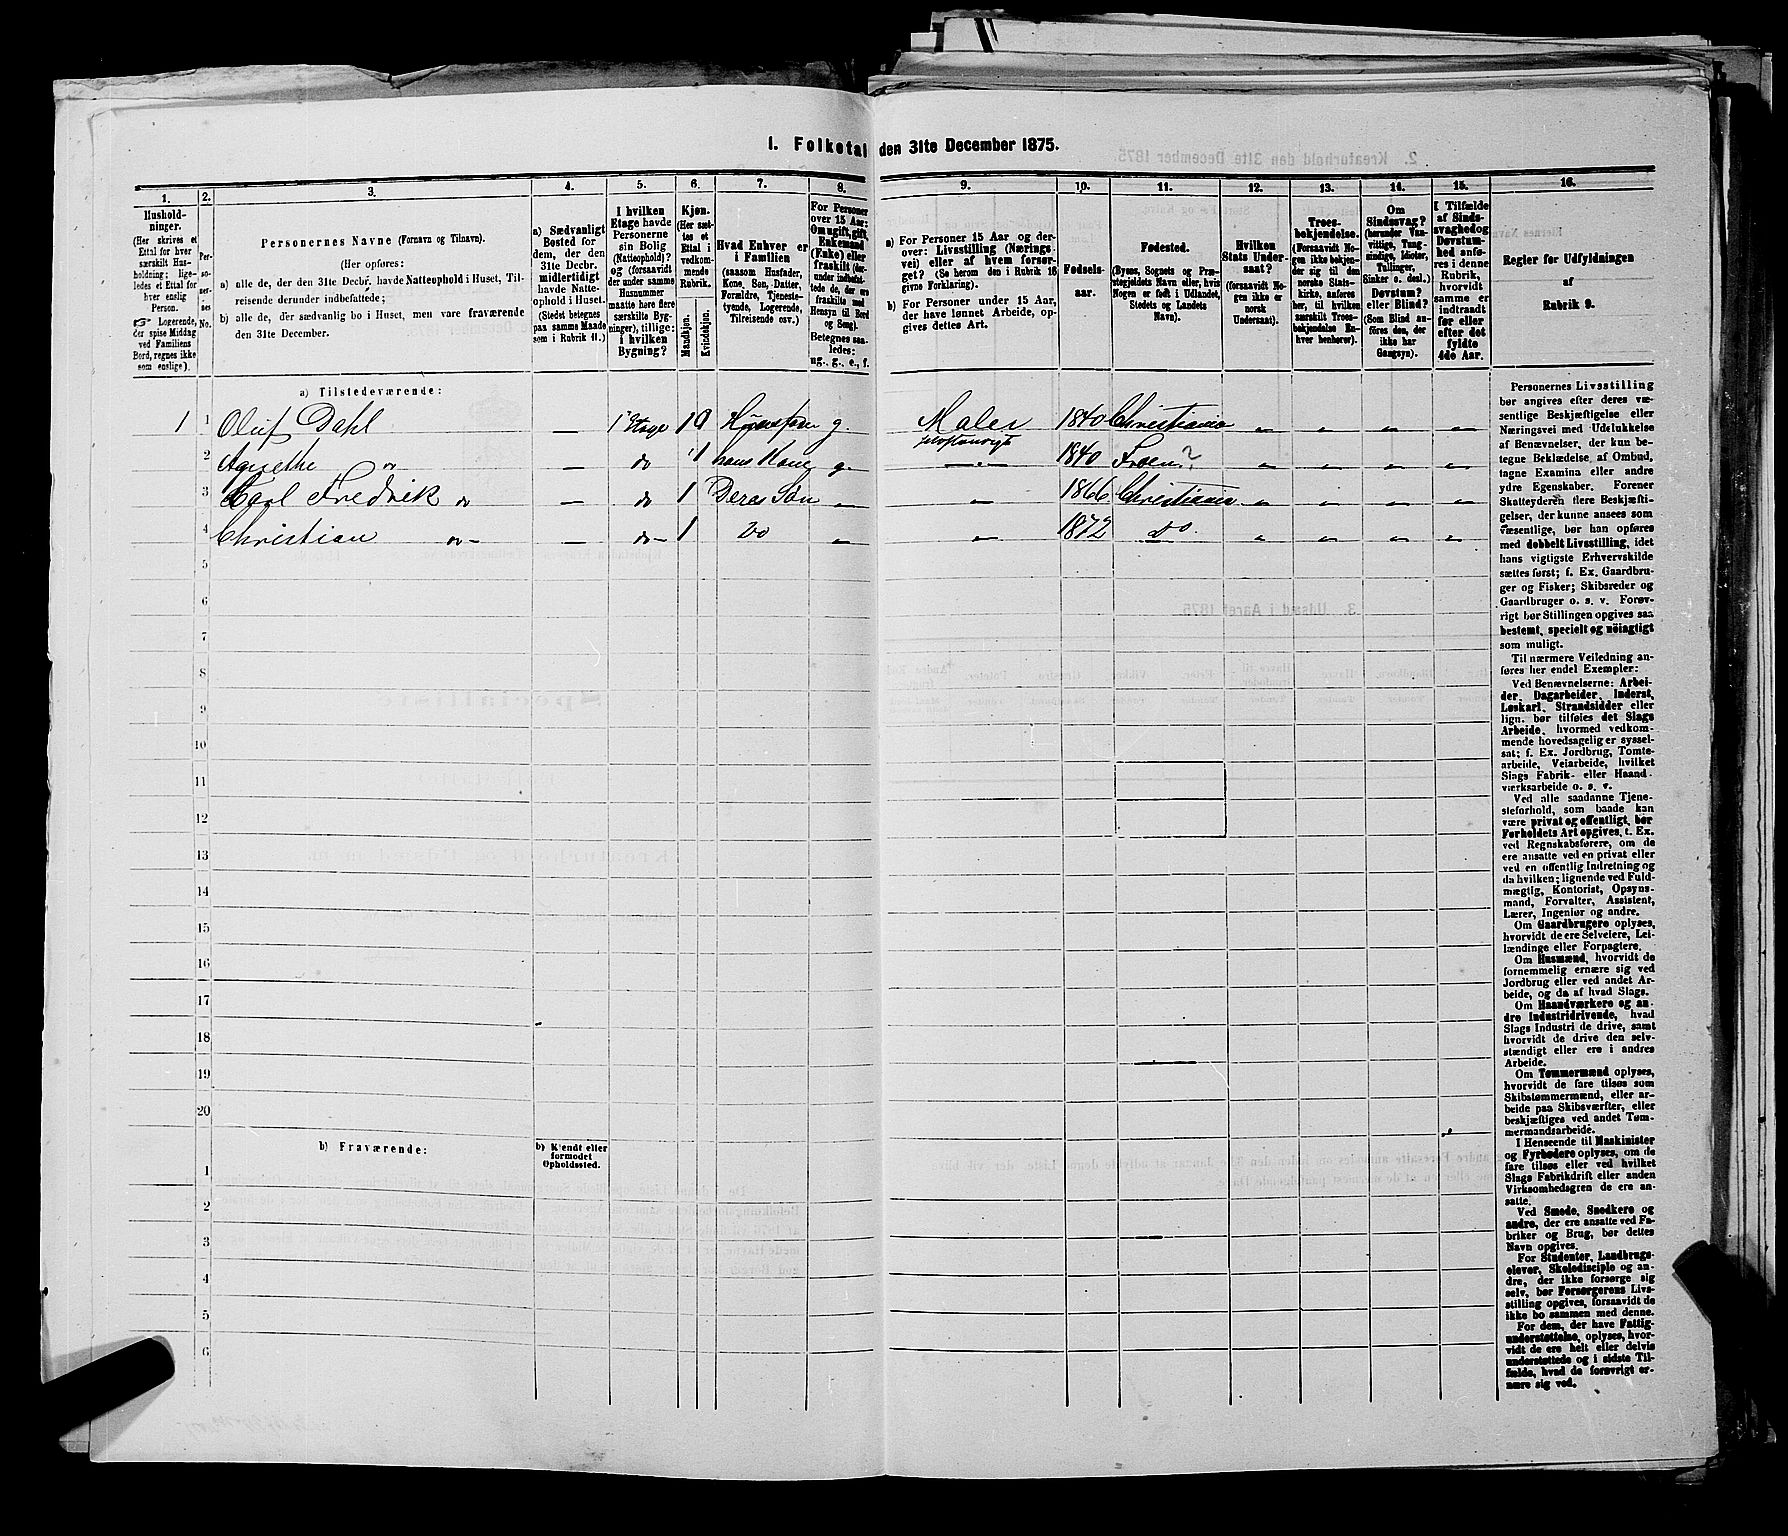 1. Folketal den 31te December 1875.
1. 2. 3. 4. 5. 6. 7. 8. 9. 10. 11. 12. 13. 14. 15. 16.
Hushold-
ninger.
(Her skrives et
Ettal for hver
særskilt Hus-
holdning; lige-
ledes et Ettal for
hver enslig
Person.
☞ Logerende,
der spise Middag
ved Familiens
Bord, regnes ikke
som enslige).
Per-
so-
ner-
nes
No.
Personernes Navne (Fornavn og Tilnavn).
(Her opføres:
a) alle de, der den 31te Decbr. havde Natteophold i Huset, Til-
reisende derunder indbefattede;
b) alle de, der sædvanlig bo i Huset, men vare fraværende
den 31te December.
a) Sædvanligt
Bosted for
dem, der den
31te Decbr.
midlertidigt
havde Natte-
ophold i Huset.
(Stedet betegnes
paa samme Maade
som i Rubrik 11.)
I hvilken
Etage havde
Personerne
sin Bolig
(Natteophold)?
og (forsaavidt
der under samme
Husnummer
maatte høre flere
særskilte Byg-
ninger), tillige:
i hvilken
Bygning?
Kjøn.
(Her sæt-
tes et
Ettal i
vedkom-
mende
Rubrik.
Mandkjøn.
Kvindekjøn.
Hvad Enhver er
i Familien
(saasom Husfader,
Kone, Søn, Datter,
Forældre, Tjeneste-
tyende, Logerende,
Tilreisende osv.)
For Personer
over 15 Aar:
Om ugift, gift,
Enkemand
(Enke) eller
fraskilt (der-
under indbefat-
tede de, der ere
fraskilte med
Hensyn til Bord
og Seng).
Betegnes saa-
ledes:
ug., g., e., f.
a) For Personer 15 Aar og der-
over: Livsstilling (Nærings-
vei) eller af hvem forsør-
get? (Se herom den i Rubrik 16
givne Forklaring).
b) For Personer under 15 Aar,
der have lønnet Arbeide, op-
gives dettes Art.
Fødsels-
aar.
Fødested.
(Byens, Sognets og Præ-
stegjeldets Navn eller, hvis
Nogen er født i Udlandet,
Stedets og Landets
Navn).
Hvilken
Stats Under-
saat?
(forsaavidt No-
gen ikke er
norsk
Undersaat).
Troes-
bekjendelse.
(Forsaavidt No-
gen ikke bekjen-
der sig til den
norske Stats-
kirke, anføres
her, til hvilken
særskilt Troes-
bekjendelse En-
hver henhører).
Om
Sindssvag?
(herunder Van-
vittige, Tung-
sindige, Idioter,
Tullinger,
Sinker o. desl.)
Døvstum?
eller Blind?
(Som Blind an-
føres den, der
ikke har
Gangsyn).
I Tilfælde
af Sinds-
svaghed og
Døvstum-
hed anfø-
res i denne
Rubrik,
hvorvidt
samme er
indtraadt
før eller
efter det
fyldte
4de Aar.
Regler for Udfyldningen
af
Rubrik 9.
a) Tilstedeværende:
1 1 Oluf Dahl — 1 Etage 1 Huusfader g. Maler 1840 Christiania
2 Agnethe do — do 1 hans Kone g. — 1840 Froen?
3 Carl Fredrik do — do 1 Deres Søn — 1866 Christiania
4 Christian do — do 1 Do — 1872 do.
5
6
7
8
9
10
11
12
13
14
15
16
17
18
19
20
b) Fraværende:
b) Kjendt eller
formodet
Opholdssted.
1
2
3
4
5
6
Personernes Livsstilling
bør angives efter deres væ-
sentlige Beskjæftigelse eller
Næringsvei med Udelukkelse
af Benævnelser, der kun be-
tegne Beklædelse, af Ombud,
tagne Examina eller andre
ydre Egenskaber. Forener
Skatteyderen flere Beskjæfti-
gelser, der kunne ansees som
væsentlige, bør han opføres
med dobbelt Livsstilling, idet
hans vigtigste Erhvervskilde
sættes først; f. Ex. Gaardbru-
ger og Fisker; Skibsreder og
Gaardbruger o. s. v. Forøv-
rigt bør Stillingen opgives saa
bestemt, specielt og nøiagtigt
som muligt.
Til nærmere Veiledning an-
føres her endel Exempler:
Ved Benævnelserne: Arbei-
der, Dagarbeider, Inderst,
Løskarl, Strandsidder eller
lign. bør tilføies det Slags
Arbeide, hvormed vedkom-
mende hovedsagelig er syssel-
sat; f. Ex. Jordbrug, Tomte-
arbeide, Veiarbeide, hvilket
Slags Fabrik- eller Haand-
værksarbeide o. s. v.
Ved alle saadanne Tjene-
steforhold, som baade kan
være privat og offentligt, bør
Forholdets Art opgives, t. Ex.
ved Regnskabsførere, om de
ere ansatte ved en privat eller
ved en offentlig Indretning og
da hvilken; lignende ved Fuld-
mægtig, Kontorist, Opsyns-
mand, Forvalter, Assistent,
Lærer, Ingeniør og andre.
Om Gaardbrugere oplyses,
hvorvidt de ere Selveiere, Lei-
lændinge eller Forpagtere.
Om Husmænd, hvorvidt de
fornemmelig ernære sig ved
Jordbrug eller ved andet Ar-
beide, og da af hvad Slags.
Om Haandværkere og an-
dre Industridrivende, hvad
Slags Industri de drive, samt
hvorvidt de drive den selv-
stændigt eller ere i andres
Arbeide.
Om Tømmermænd oplyses,
hvorvidt de fare tilsøs som
Skibstømmermænd, eller ar-
beide paa Skibsværfter, eller
beskjæftiges ved andet Tøm-
mermandsarbeide.
I Henseende til Maskinister
og Fyrbødere oplyses, om de
fare tilsøs eller ved hvilket
Slags Fabrikdrift eller anden
Virksomhedsgren de ere an-
satte.
Ved Smede, Snedkere og
andre, der ere ansatte ved Fa-
briker og Brug, bør dettes
Navn opgives.
For Studenter, Landbrugs-
elever, Skoledisciple og an-
dre, der ikke forsørge sig
selv, bør Forsørgerens Livs-
stilling opgives, forsaavidt de
ikke bo sammen med denne.
For dem, der have Fattig-
understøttelse, oplyses, hvor-
vidt de ere helt eller delvis
understøttede og i sidste Til-
fælde, hvad de forøvrigt er-
nære sig ved.